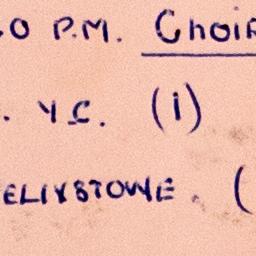 0 P.M. Choir
. Y.C. (i)
ELIXSTOWE. (